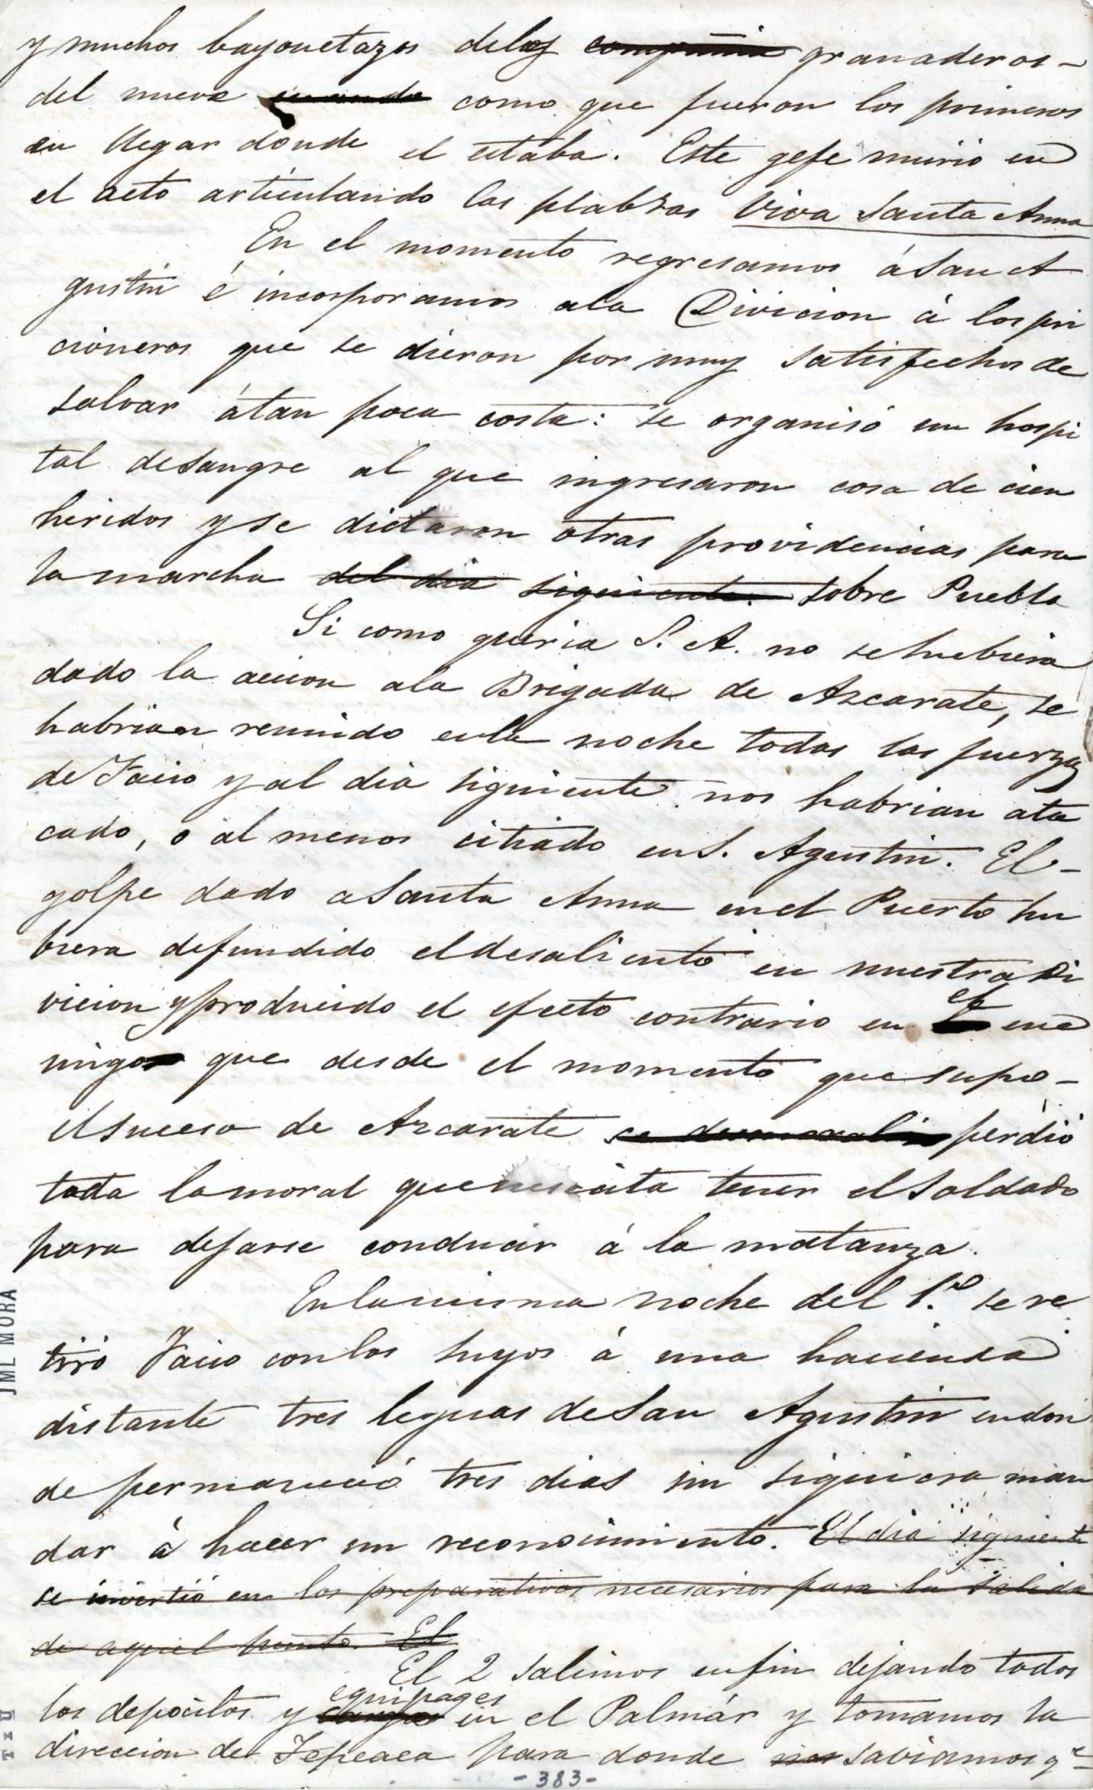 y muchos bayonetazos delos compañia granaderos-
del nueve cuando como que fueron los primeros
en llegar donde el estaba. Este gefe murio en
el acto articulando las plabras Viva Santa Anna
En el momento regresamos á San A
gustin é incorporamos ala Division á los pri
cioneros que se dieron por muy satisfechos de
salvar átan poca costa: se organisó un hospi
tal desangre al que ingresaron cosa de cien
heridos y se dictaron otras providencias para
la marcha del dia siguiente. sobre Puebla
Si como queria S. A. no se hubiera
dado la accion ala Brigada de Azcarate, se
habrian reunido enla noche todas las fuerzas
de Facio y al dia siguiente nos habrian ata
cado, o al menos citiado en S. Agustin. El-
golpe dado a Santa Anna en el Puerto hu
biera defundido el desaliento en nuestra Di
vicion y producido el efecto contrario en el ene
migo que desde el momento que supo-
el suceso de Azcarate se desmoralizó perdió
toda la moral que necesita tener el soldado
para dejarse conducir á la matanza.
En la misma noche del 1.º se re
tiró Facio con los suyos á una hacienda
distante tres leguas de San Agustin en don
de permaneció tres dias sin siquiera man
dar á hacer un reconocimiento. El dia siguiente
se invirtió en los preparativos necesarios para la salida
de aquel punto. El
El 2 salimos enfin dejando todos
los depocitos y cargas equipages en el Palmár y tomamos la
direccion de Tepeaca para donde nos sabiamos qe
-383-
JML MORA